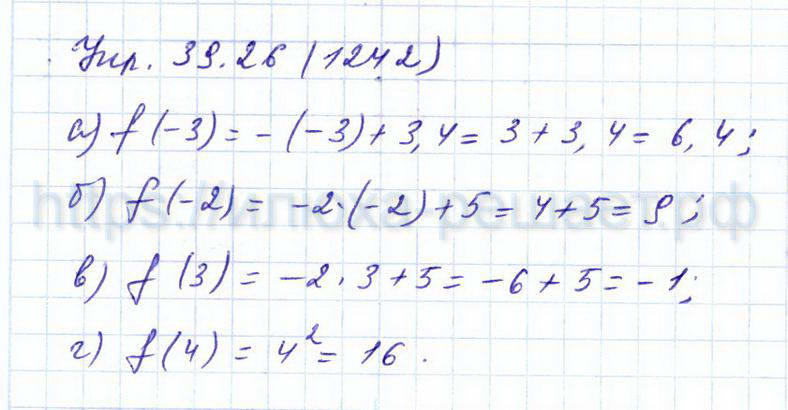 Упр. 39.26 (1242)
а) f(-3) = -(-3) + 3,4 = 3 + 3,4 = 6,4;
б) f(-2) = -2·(-2) + 5 = 4 + 5 = 9;
https://илюха-решает.рф
в) f(3) = -2·3 + 5 = -6 + 5 = -1;
г) f(4) = 4² = 16.